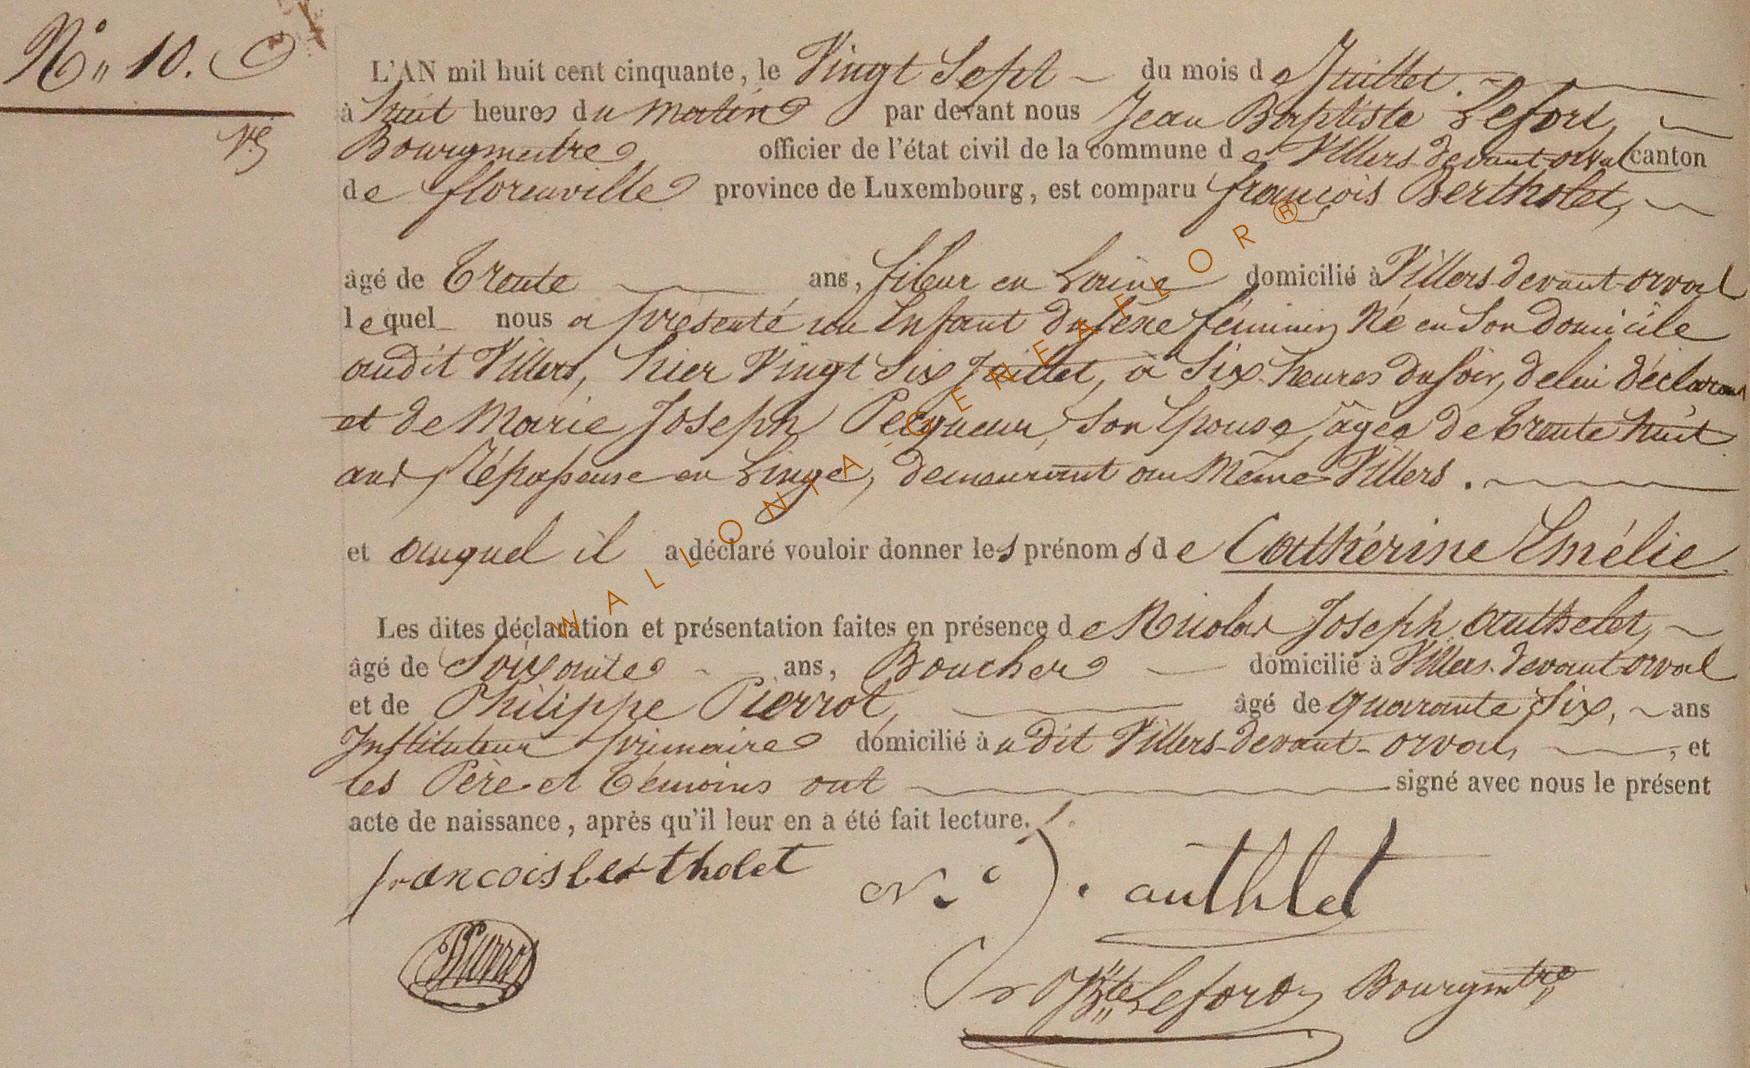 N° 10.
L'AN mil huit cent cinquante, le Vingt Sept du mois de Juillet.
à huit heures du matin par devant nous Jean Baptiste Lefort,
Bourgmestre officier de l'état civil de la commune de Villers devant orval canton
de florenville province de Luxembourg, est comparu françois Bertholet,
âgé de Trente ans, fileur en Laine domicilié à Villers devant orval
lequel nous a présenté un Enfant du sexe féminin Né en Son domicile
audit Villers, hier Vingt Six Juillet, à Six heures du soir, de lui déclarant
et de Marie Joseph Pecqueur, Son Epouse, âgée de trente huit
ans, Répasseuse en Linge, demeurant au Même Villers.
et auquel il a déclaré vouloir donner les prénoms de Cathérine Emélie
Les dites déclaration et présentation faites en présence de Nicolas Joseph Authelet,
âgé de Soixante ans, Boucher domicilié à Villers devant orval
et de Philippe Pierrot, âgé de quarante Six, ans
Instituteur primaire domicilié audit Villers-devant-orval, , et
les Père et Témoins ont signé avec nous le présent
acte de naissance, après qu'il leur en à été fait lecture.
francois bertholet N. J. authlet
Pierrot
Bte Lefort Bourgmtre
WALLONIA-GENEAFLOR®